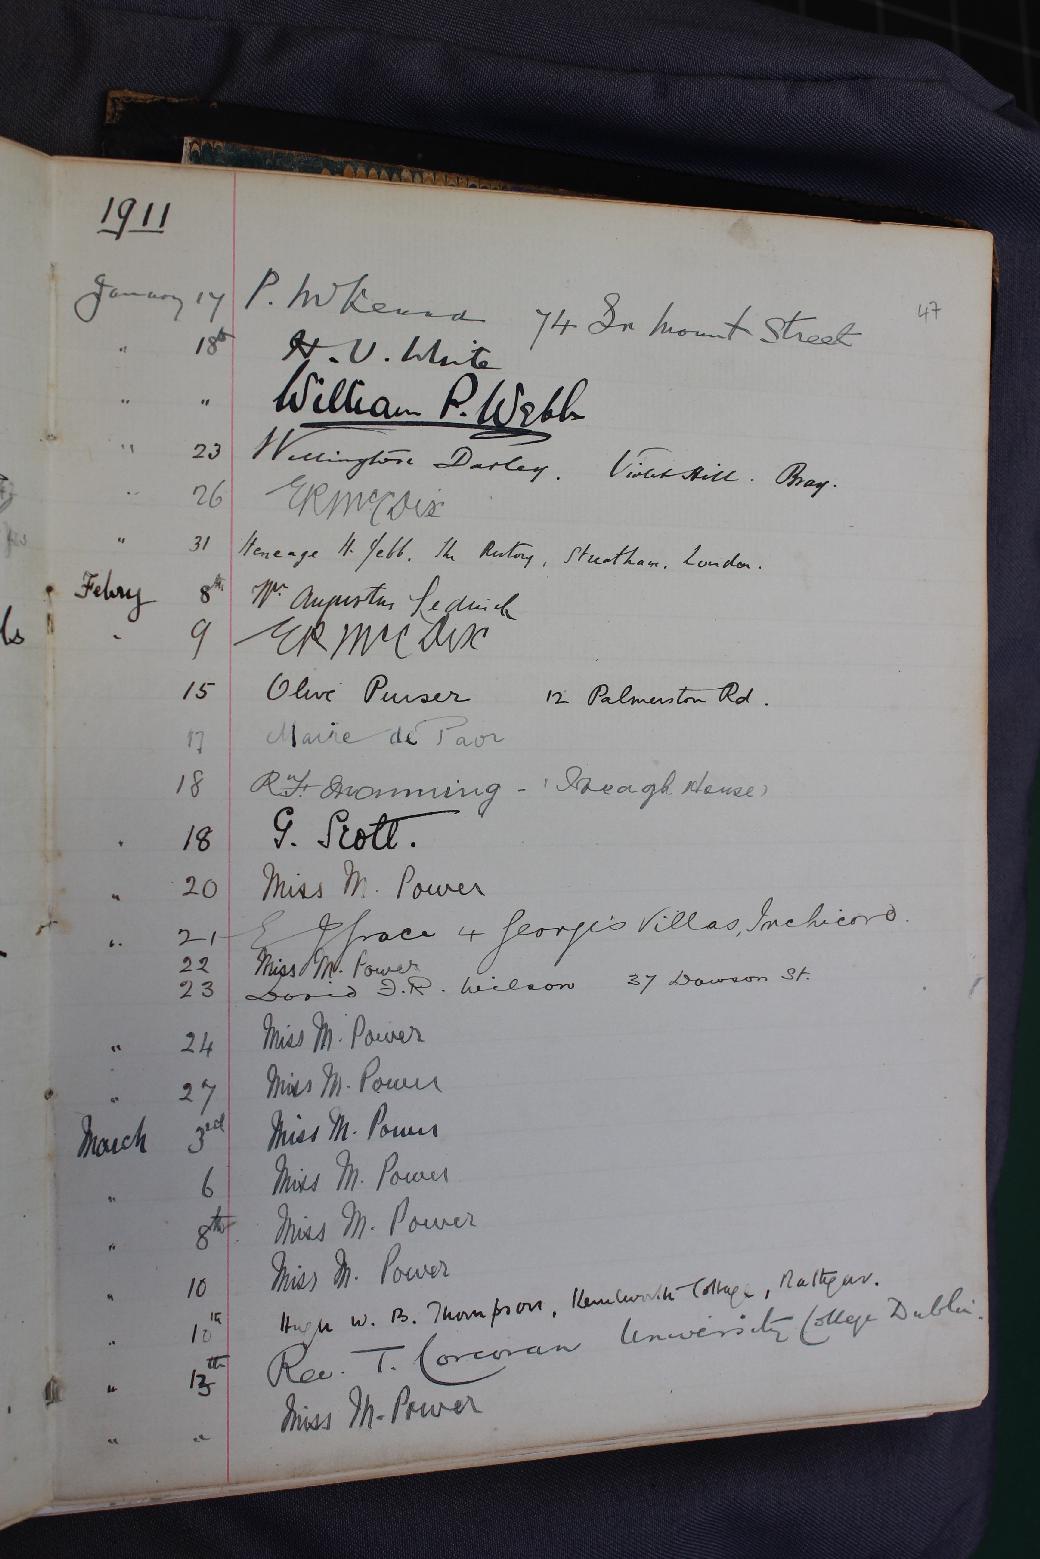 1911
47
January 17 P. McKenna 74 Lr Mount Street
" 18th H. V. White
" " William P. Webb
" 23 Wellington Darley. Violet Hill. Bray.
" 26 ER McC Dix
" 31 Heneage H. Jebb. The Rectory, Streatham. London.
Febry 8th Wm Augustus Ledwich
" 9 ER McC Dix
15 Olive Purser 12 Palmerston Rd.
17 Maire de Paor
18 (Iveagh House)
" 18 G. Scott.
" 20 Miss M. Power
" 21 E J Grace 4 George's Villas, Inchicore.
22 Miss M. Power
23 David F.R. Wilson 37 Dawson St.
" 24 Miss M. Power
" 27 Miss M. Power
March 3rd Miss M. Power
" 6 Miss M. Power
" 8th Miss M. Power
" 10 Miss M. Power
" 10th Hugh W. B. Thompson, Kenilworth College, Rathgar.
" 13th Rev. T. Corcoran University College Dublin.
" " Miss M. Power